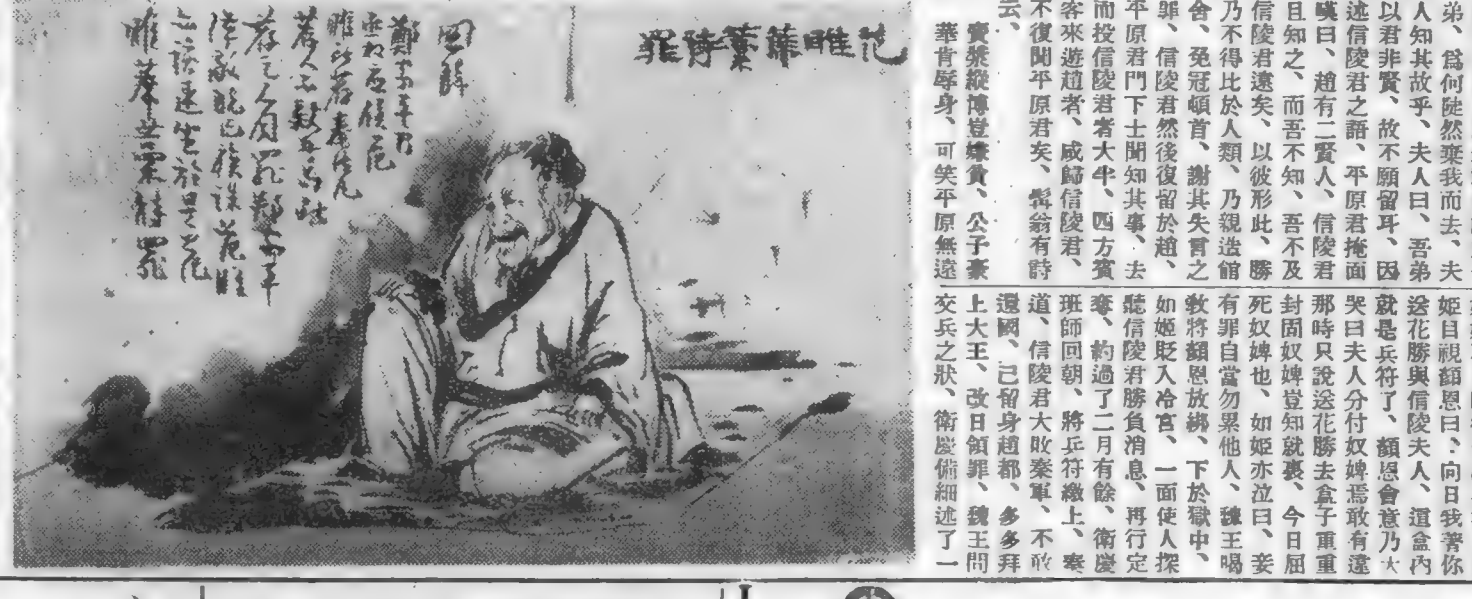 弟、爲何陡然棄我而去、夫
人知其故乎、夫人曰、吾弟
以君非賢、故不願留耳、因
述信陵君之語、平原君掩面
嘆曰、趙有二賢人、信陵君
且知之、而吾不知、吾不及
信陵君遠矣、以彼形此、勝
乃不得比於人類、乃親造館
舍、免冠頓首、謝其失言之
罪、信陵君然後復留於趙、
平原君門下士聞知其事、去
而投信陵君者大半、四方賓
客來遊趙者、咸歸信陵君、
不復聞平原君矣、髯翁有詩
云、
賣漿縱博豈嫌貧、公子豪
華肯辱身、可笑平原無遠
姬目視顏恩曰、向日我著你
送花勝與信陵夫人、這盒內
就是兵符了、顏恩會意乃大
哭曰夫人分付奴婢焉敢有違
那時只說送花勝去盒子重重
封固奴婢豈知就裏、今日屈
死奴婢也、如姬亦泣曰、妾
有罪自當勿累他人、魏王喝
教將顏恩放綁、下於獄中、
如姬貶入冷宮、一面使人探
聽信陵君勝負消息、再行定
奪、約過了二月有餘、衛慶
班師回朝、將兵符繳上、奏
道、信陵君大敗秦軍、不敢
還國、已留身趙都、多多拜
上大王、改日領罪、魏王問
交兵之狀、衛慶備細述了一
范雎蓆藁待罪
鄭安平乃
丞相應侯范